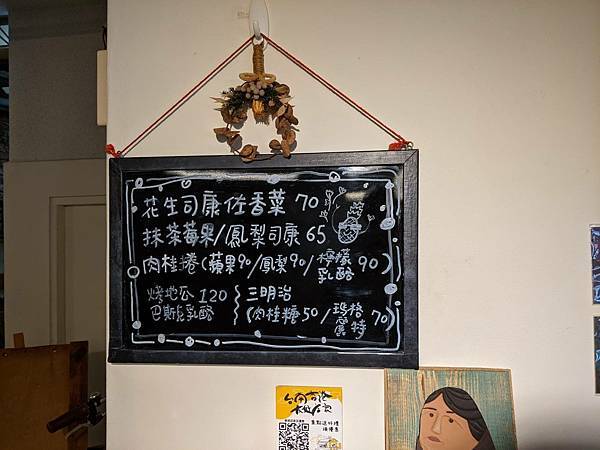 花生司康佐香菜 70
抹茶莓果/鳳梨司康 65
肉桂捲(蘋果90/鳳梨90/檸檬乳酪 90)
烤地瓜 120
巴斯能乳酪
三明治
(肉桂糖50/瑪格麗特 70)
台南